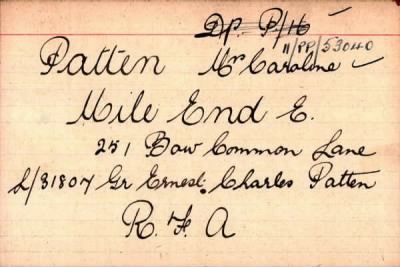 Dp. P/16
11/PP/53040
Patten Mrs Caroline
Mile End E.
251 Bow Common Lane
L/31807 Gr Ernest. Charles Patten
R. F. A